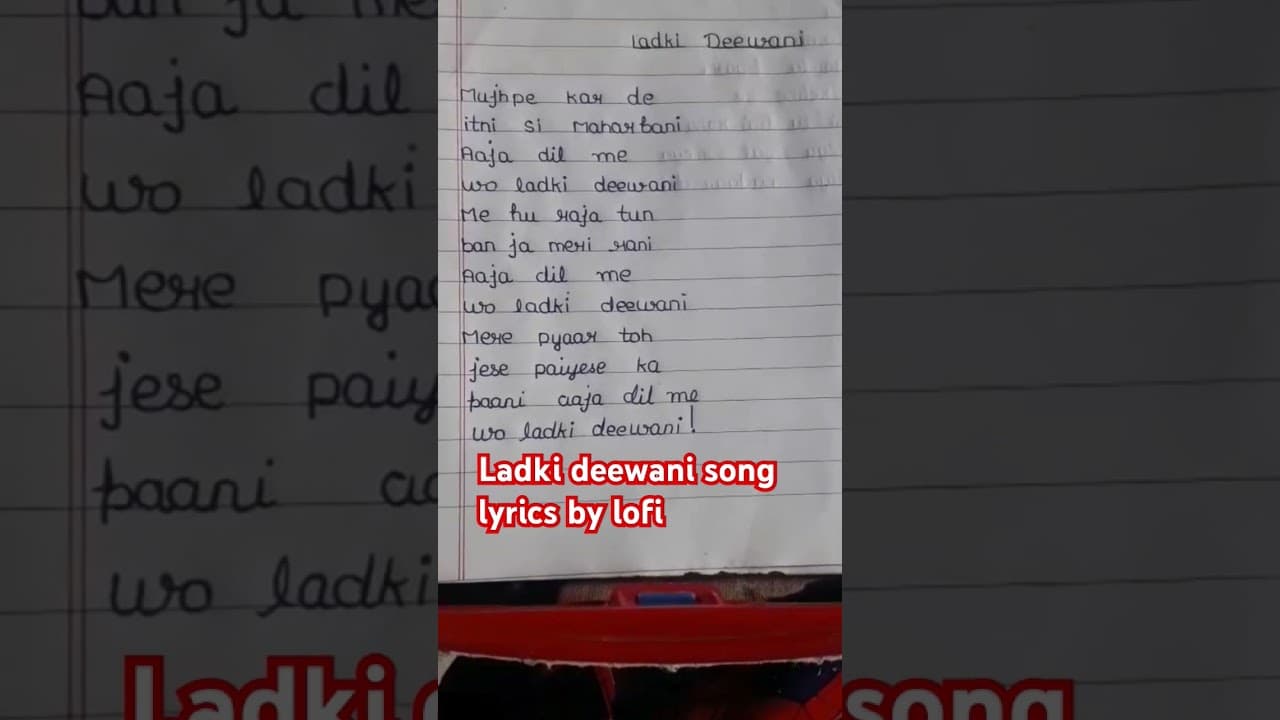 Ladki Deewani
Mujhpe kar de
itni si Maharbani
Aaja dil me
wo ladki deewani
Me hu raja tun
ban ja meri rani
Aaja dil me
wo ladki deewani
Mere pyaar toh
jese paiyese ka
paani aaja dil me
wo ladki deewani!
Ladki deewani song
lyrics by lofi